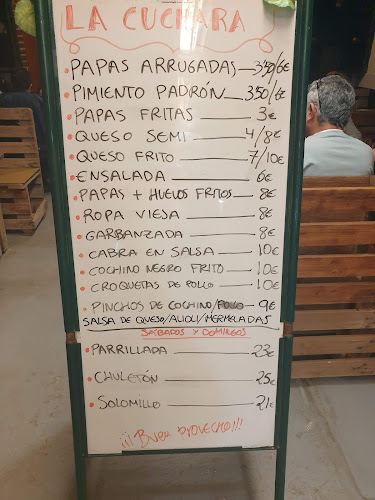 LA CUCHARA
• PAPAS ARRUGADAS — 3'50/6€
• PIMIENTO PADRÓN — 3'50/6€
• PAPAS FRITAS — 3€
• QUESO SEMI — 4/8€
• QUESO FRITO — 7/10€
• ENSALADA — 6€
• PAPAS + HUEVOS FRITOS — 8€
• ROPA VIEJA — 8€
• GARBANZADA — 8€
• CABRA EN SALSA — 10€
• COCHINO NEGRO FRITO — 10€
• CROQUETAS DE POLLO — 10€
• PINCHOS DE COCHINO/POLLO — 9€
SALSA DE QUESO/ALIOLI/MERMELADAS
SÁBADOS Y DOMINGOS
• PARRILLADA — 23€
• CHULETÓN — 25€
• SOLOMILLO — 21€
¡¡¡BUEN PROVECHO!!!